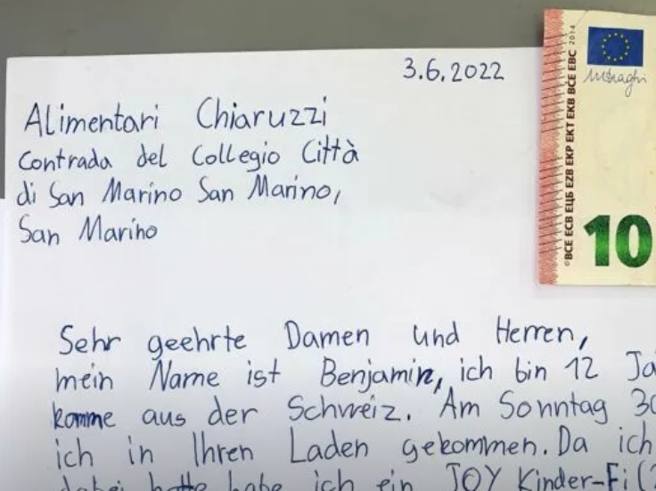 3.6.2022
Alimentari Chiaruzzi
Contrada del Collegio Città
di San Marino San Marino,
San Marino
©BCE ECB ЕЦБ EZB EKP EKT EKB BCE EBC 2014
10
Sehr geehrte Damen und Herren,
mein Name ist Benjamin, ich bin 12 Ja
komme aus der Schweiz. Am Sonntag 30
ich in Ihren Laden gekommen. Da ich
dabei hatte habe ich ein JOY Kinder-Ei (2